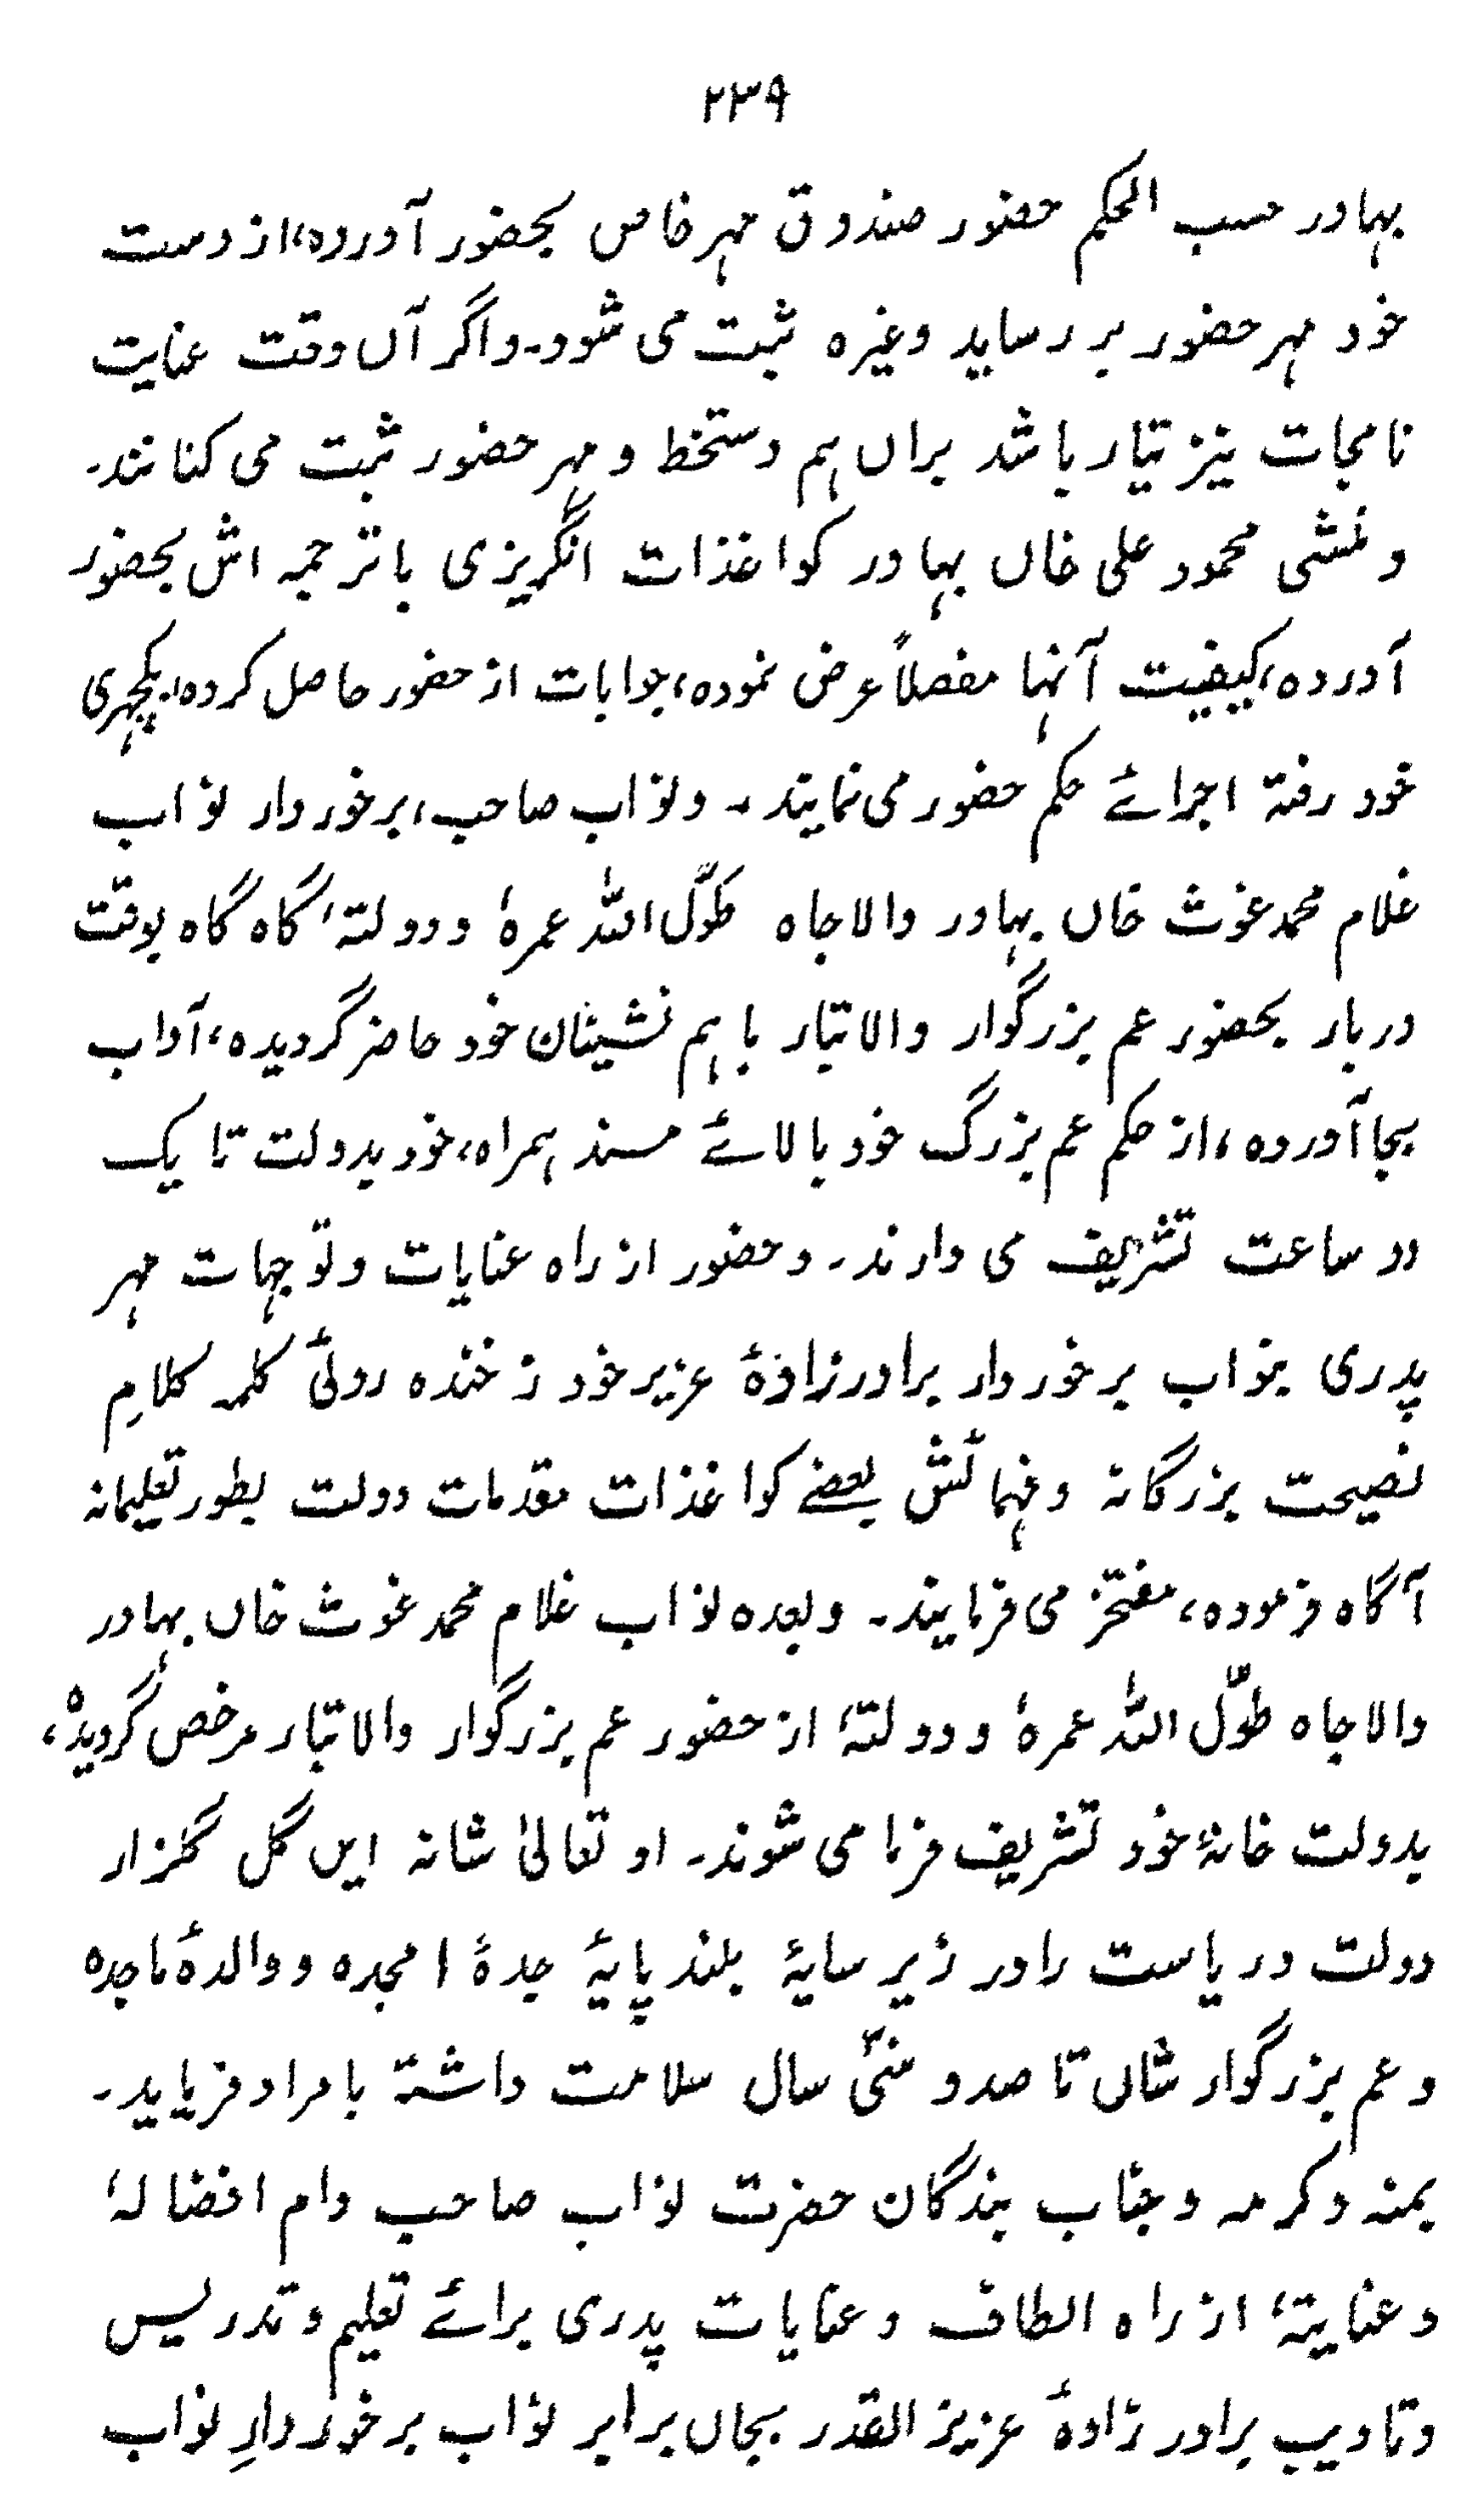 ۲۳۹
بہادر حسب الحکم حضور صندوق مہر خاص بحضور آوردہ، از دست
خود مہر حضور بر رساید وغیرہ ثبت می شود۔ واگر آں وقت عنایت
نامجات نیز تیار باشد براں ہم دستخط و مہر حضور ثبت می کنانند۔
و منشی محمود علی خاں بہادر کواغذات انگریزی با ترجمہ اش بحضور
آوردہ، کیفیت آنہا مفصلاً عرض نمودہ، جوابات از حضور حاصل کردہ، بکچہری
خود رفتہ اجرائے حکم حضور می نمایند۔ ونواب صاحب، برخوردار نواب
غلام محمد غوث خاں بہادر والا جاہ طوّل اللہ عمرہٗ ودولتہٗ گاہ گاہ بوقت
دربار بحضور عم بزرگوار والا تبار باہم نشینان خود حاضر گردیدہ، آداب
بجا آوردہ، از حکم عم بزرگ خود بالائے مسند ہمراہ، خود بدولت تا یک
دو ساعت تشریف می دارند۔ وحضور از راہ عنایات وتوجہات مہر
پدری بنواب برخوردار برادر زادۂ عزیز خود ز خندہ روئی کلمہ کلامِ
نصیحت بزرگانہ وفہمائش بعضے کواغذات مقدمات دولت بطور تعلیمانہ
آگاہ فرمودہ، مفتخر می فرمایند۔ وبعدہ نواب غلام محمد غوث خاں بہادر
والا جاہ طوّل اللہ عمرہٗ ودولتہٗ از حضور عم بزرگوار والا تبار مرخص گردیدہ،
بدولت خانۂ خود تشریف فرما می شوند۔ او تعالیٰ شانہ ایں گل گلزار
دولت وریاست را در زیر سایۂ بلند پایۂ جدۂ امجدہ ووالدۂ ماجدہ
وعم بزرگوار شاں تا صد و سنّی سال سلامت داشتہ بامراد فرماید۔
بمنہ وکرمہ وجناب بندگان حضرت نواب صاحب دام افضالہٗ
وعنایتہٗ از راہ الطاف وعنایات پدری برائے تعلیم وتدریس
وتادیب برادر زادۂ عزیز القدر بجاں برابر نواب برخوردارِ نواب